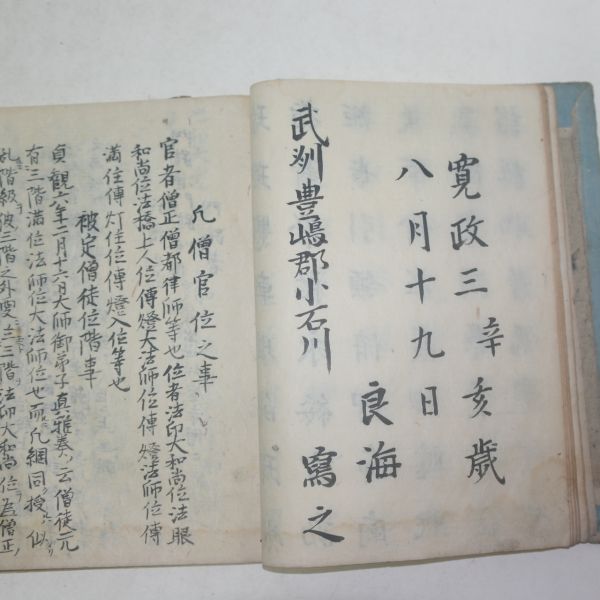 寛政三辛亥歳
八月十九日
良海
武州豊嶋郡小石川 寫之
凡僧官位之事
官者僧正僧都律師等也位者法印大和尚位法眼
和尚位法橋上人位傳燈大法師位傳燈法師位傳
満住傳灯住位傳燈入位等也
被定僧徒位階事
貞觀六年二月十六日大師御弟子真雅奏云僧徒元
有三階満位法師位大法師位也而凡網同授似
乱階級彼三階之外更立三階法印大和尚位為僧正